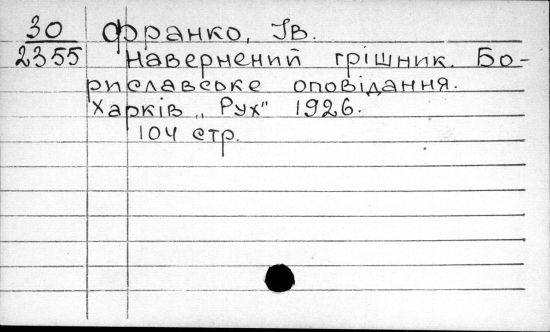 30 Франко, Ів.
2355 Навернений грішник. Бо-
риславське оповідання.
Харків „Рух" 1926.
104 стр.